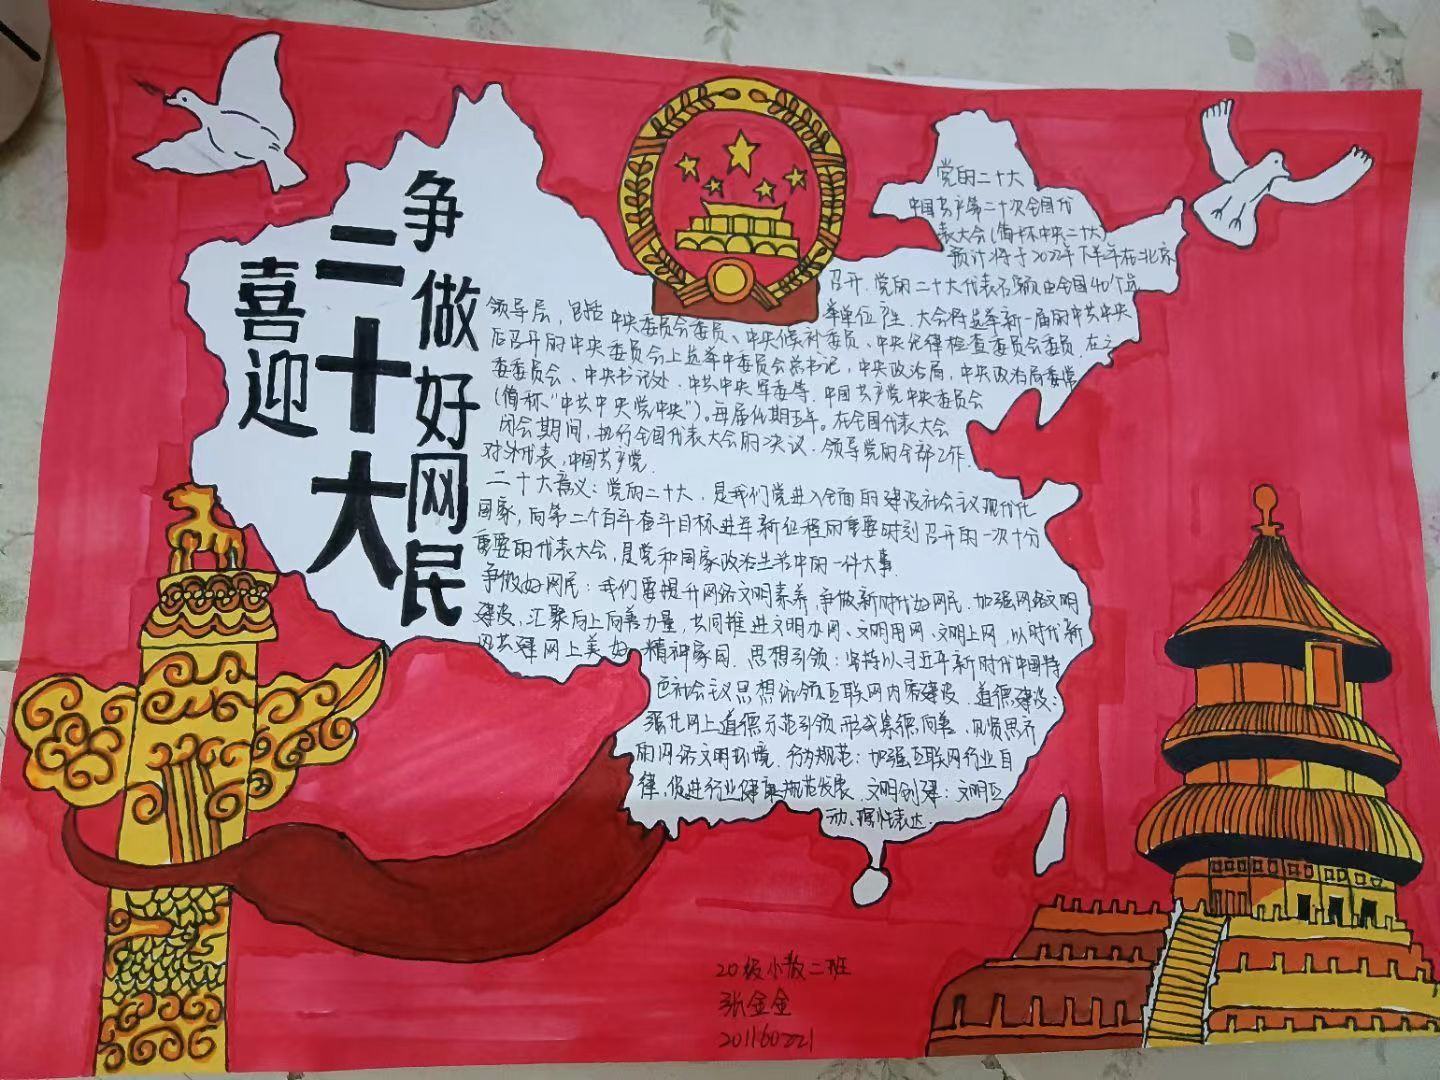 喜迎
二十大
争做好网民
党的二十大
中国共产第二十次全国代
表大会(简称中央二十大)
预计将于2022年下半年在北京
召开.党的二十大代表名额由全国40个选
举单位产生.大会将选举新一届的中共中央
领导层,包括中央委员会委员、中央候补委员、中央纪律检查委员会委员.在
后召开的中央委员会上选举中委员会总书记,中央政治局,中央政治局委常
委委员会、中央书记处.中共中央军委等.中国共产党中央委员会
(简称"中共中央党中央")。每届任期五年。在全国代表大会
闭会期间,执行全国代表大会的决议.领导党的全部工作.
对外代表,中国共产党.
二十大意义:党的二十大,是我们党进入全面的建设社会主义现代化
国家,向第二个百年奋斗目标进军新征程的重要时刻召开的一次十分
重要的代表大会,是党和国家政治生活中的一件大事.
争做好网民:我们要提升网络文明素养.争做新时代好网民.加强网络文明
建设,汇聚向上向善力量,共同推进文明办网、文明用网、文明上网,以时代新
共建网上美好精神家园.思想引领:坚持以习近平新时代中国特
色社会主义思想引领互联网内容建设.道德建设:
强化网上道德示范引领形成崇德向善、见贤思齐
的网络文明环境.行为规范:加强互联网行业自
律,促进行业健康规范发展.文明创建:文明互
动、理性表达.
20级小教二班
张金金
201160221